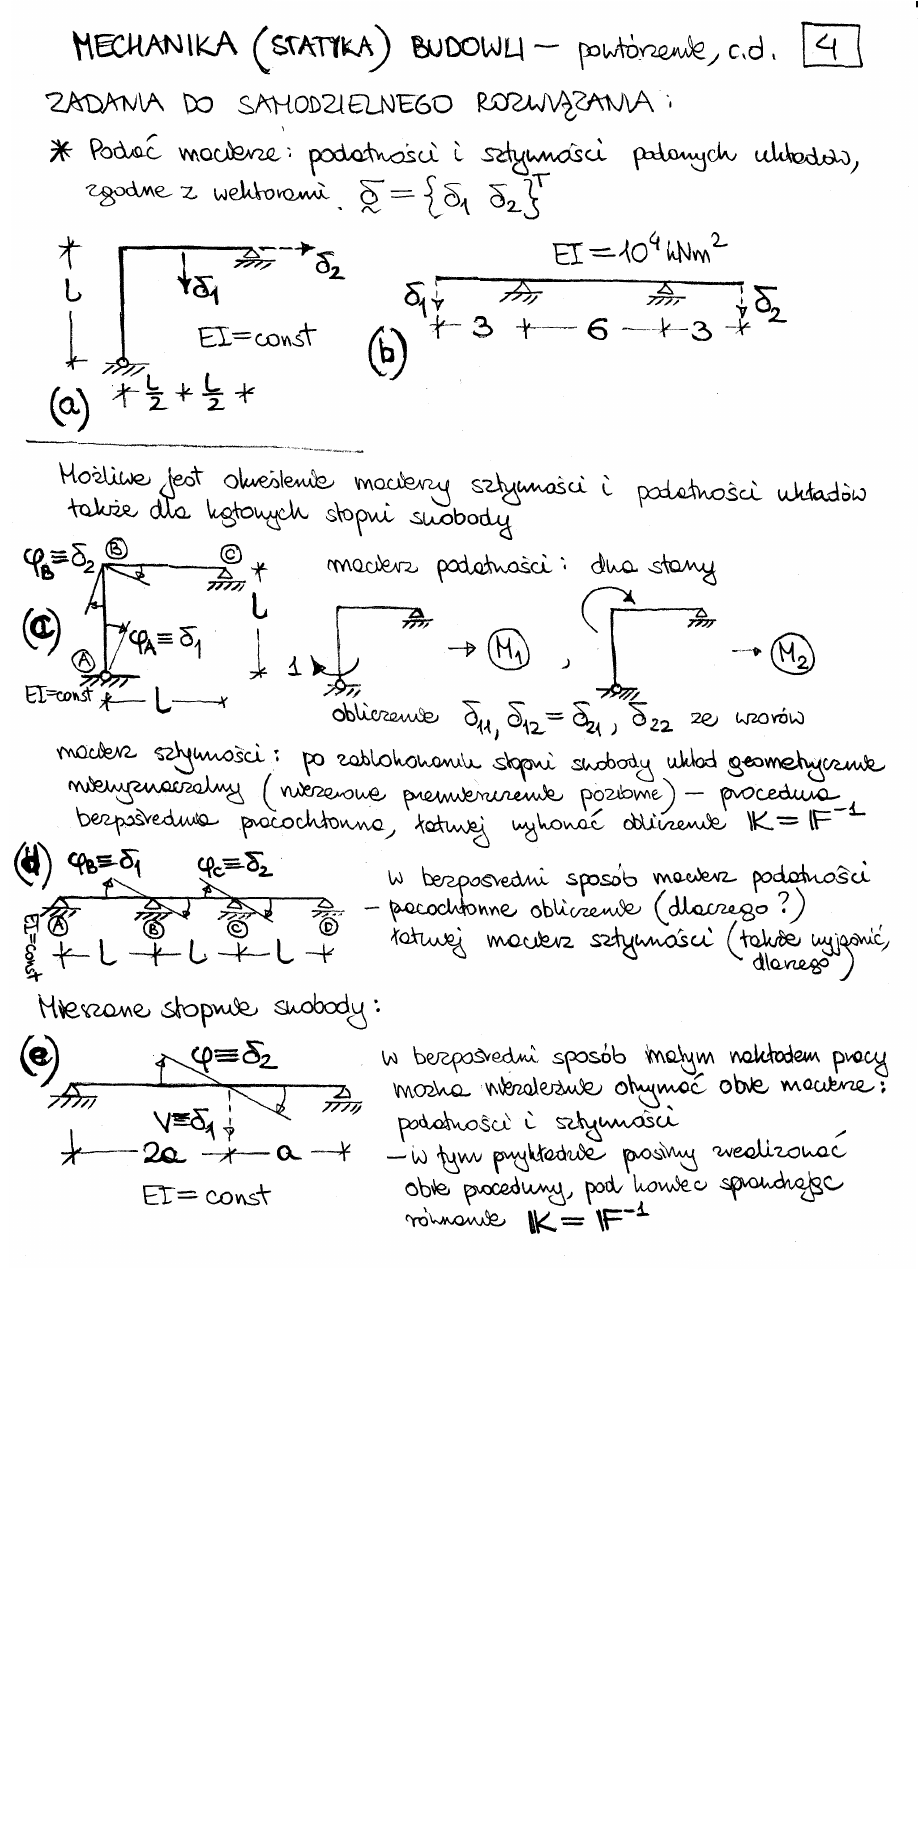 MECHANIKA (STATYKA) BUDOWLI – powtórzenie, c.d. 4
ZADANIA DO SAMODZIELNEGO ROZWIĄZANIA:
* Podać macierze: podatności i sztywności podanych układów,
zgodne z wektorami δ = {δ1 δ2}ᵀ
L
δ1
δ2
EI = const
L/2 L/2
(a)
EI = 10⁴ kNm²
δ1
δ2
3 6 3
(b)
Możliwe jest określenie macierzy sztywności i podatności układów
także dla kątowych stopni swobody
φB ≡ δ2 B C
macierz podatności: dwa stany
(c)
L
φA ≡ δ1
A
EI = const L
1
→ M1 ,
→ M2
obliczenie δ11, δ12 = δ21, δ22 ze wzorów
macierz sztywności: po zablokowaniu stopni swobody układ geometrycznie
niewyznaczalny (niezerowe przemieszczenie poziome) – procedura
bezpośrednia pracochłonna, łatwiej wykonać obliczenie K = F⁻¹
(d) φB ≡ δ1 φC ≡ δ2
A B C D
EI = const
L L L
w bezpośredni sposób macierz podatności
– pacochłonne obliczenie (dlaczego?)
łatwiej macierz sztywności (także wyjaśnić,
dlaczego)
Mieszane stopnie swobody:
(e)
φ ≡ δ2
V ≡ δ1
2a a
EI = const
w bezpośredni sposób małym nakładem pracy
można niezależnie otrzymać obie macierze:
podatności i sztywności
– w tym przykładzie prosimy zrealizować
obie procedury, pod koniec sprawdzając
równanie K = F⁻¹